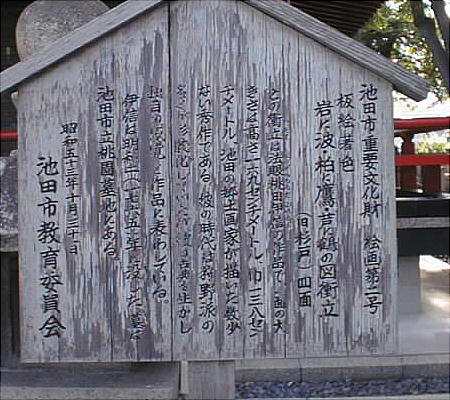 池田市重要文化財 絵画第二号
板絵著色
岩に波・柏に鷹・芦に鶴の図衝立
(旧杉戸) 四面
この衝立は法眼桃田伊信の作品で一面の大
きさは高さ一六九センチメートル、巾一三八セン
チメートル、池田の郷土画家が描いた数少
ない秀作である。彼の時代は狩野派の
独自の境を作品に表わしている。
伊信は明和二(一七六五)年に没した。墓は
池田市立桃園墓地にある。
昭和五十三年十月三十一日
池田市教育委員会